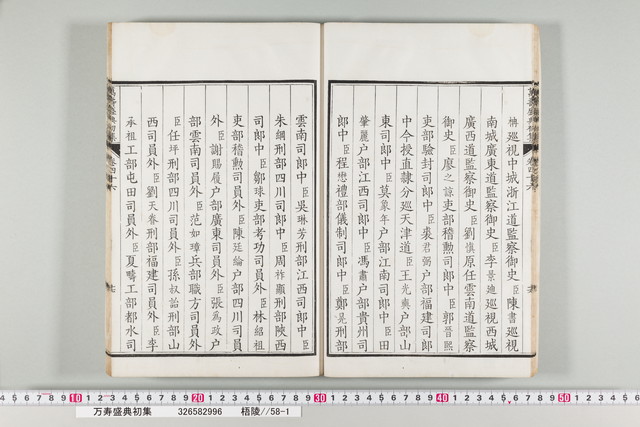 柟巡視中城浙江道監察御史臣陳書巡視
南城廣東道監察御史臣李景迪巡視西城
廣西道監察御史臣劉 原任雲南道監察
御史臣廖之諒吏部稽勲司郎中臣郭晋熙
吏部驗封司郎中臣裘君弼户部福建司郎
中今授直隸分巡天津道臣王光典户部山
東司郎中臣莫象年户部江南司郎中臣田
肇麗户部江西司郎中臣馮 户部貴州司
郎中臣程懋禮部儀制司郎中臣鄭晃刑部
雲南司郎中臣吳琳芳刑部江西司郎中臣
朱綱刑部四川司郎中臣周祚顯刑部陝西
司郎中臣鄒球吏部考功司員外臣林紹祖
吏部稽勲司員外臣陳廷綸户部四川司員
外臣謝賜履户部廣東司員外臣張為政户
部雲南司員外臣范如璋兵部職方司員外
臣任坪刑部四川司員外臣孫紹 刑部山
西司員外臣劉天眷刑部福建司員外臣李
承祖工部屯田司員外臣夏疇工部都水司
萬壽盛典初集
卷四十六
萬壽盛典初集
卷四十六
1 2 3 4 5 6 7 8 9 10 1 2 3 4 5 6 7 8 9 20 1 2 3 4 5 6 7 8 9 30 1 2 3 4 5 6 7 8 9 40 1 2 3 4 5 6 7 8 9 50
万寿盛典初集 326582996 梧陵//58-1